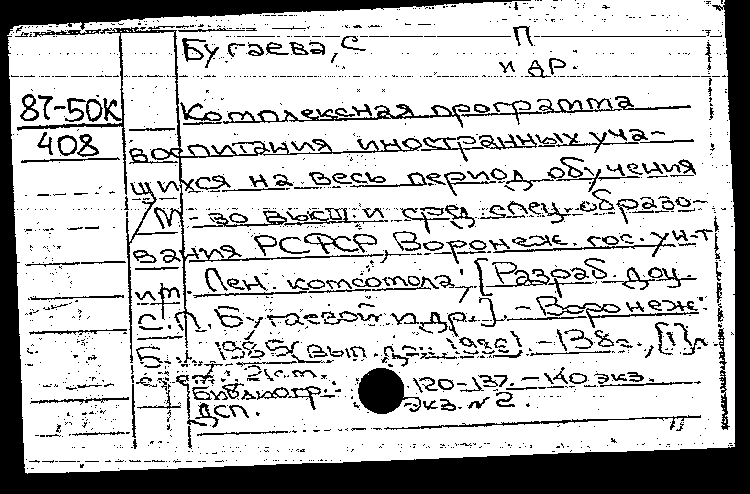 Бугаева, С П
и др.
87-50К
408
Комплексная программа
воспитания иностранных уча-
щихся на весь период обучения
/ М-во высш. и сред. спец. образо-
вания РСФСР, Воронеж. гос. ун-т
им. Лен. комсомола; [Разраб. доц.
С.П. Бугаевой и др.]. - Воронеж:
Б. 1985 (вып. дан. 1986). - 138 с., [1] л.
21 см.
Библиогр.: 120-137. - 140 экз.
ДСП. Экз. № 2.